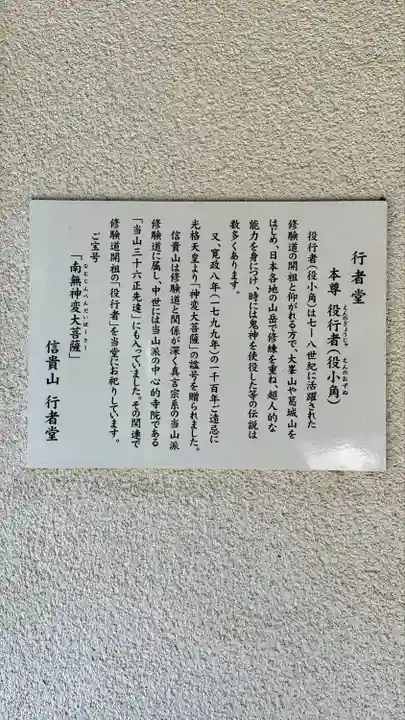 行者堂
本尊 役行者(役小角)
えんのぎょうじゃ えんのおずぬ
役行者(役小角)は七ー八世紀に活躍された
修験道の開祖と仰がれる方で、大峯山や葛城山を
はじめ、日本各地の山岳で修練を重ね、超人的な
能力を身につけ、時には鬼神を使役した等の伝説は
数多くあります。
又、寛政八年(一七九九年)の一千百年ご遠忌に
光格天皇より「神変大菩薩」の諡号を贈られました。
信貴山は修験道と関係が深く真言宗系の当山派
修験道に属し、中世には当山派の中心的寺院である
「当山三十六正先達」にも入っていました。その関連で
修験道開祖の「役行者」を当堂にお祀りしています。
ご宝号
「南無神変大菩薩」
なむじんべんだいぼーさー
信貴山 行者堂